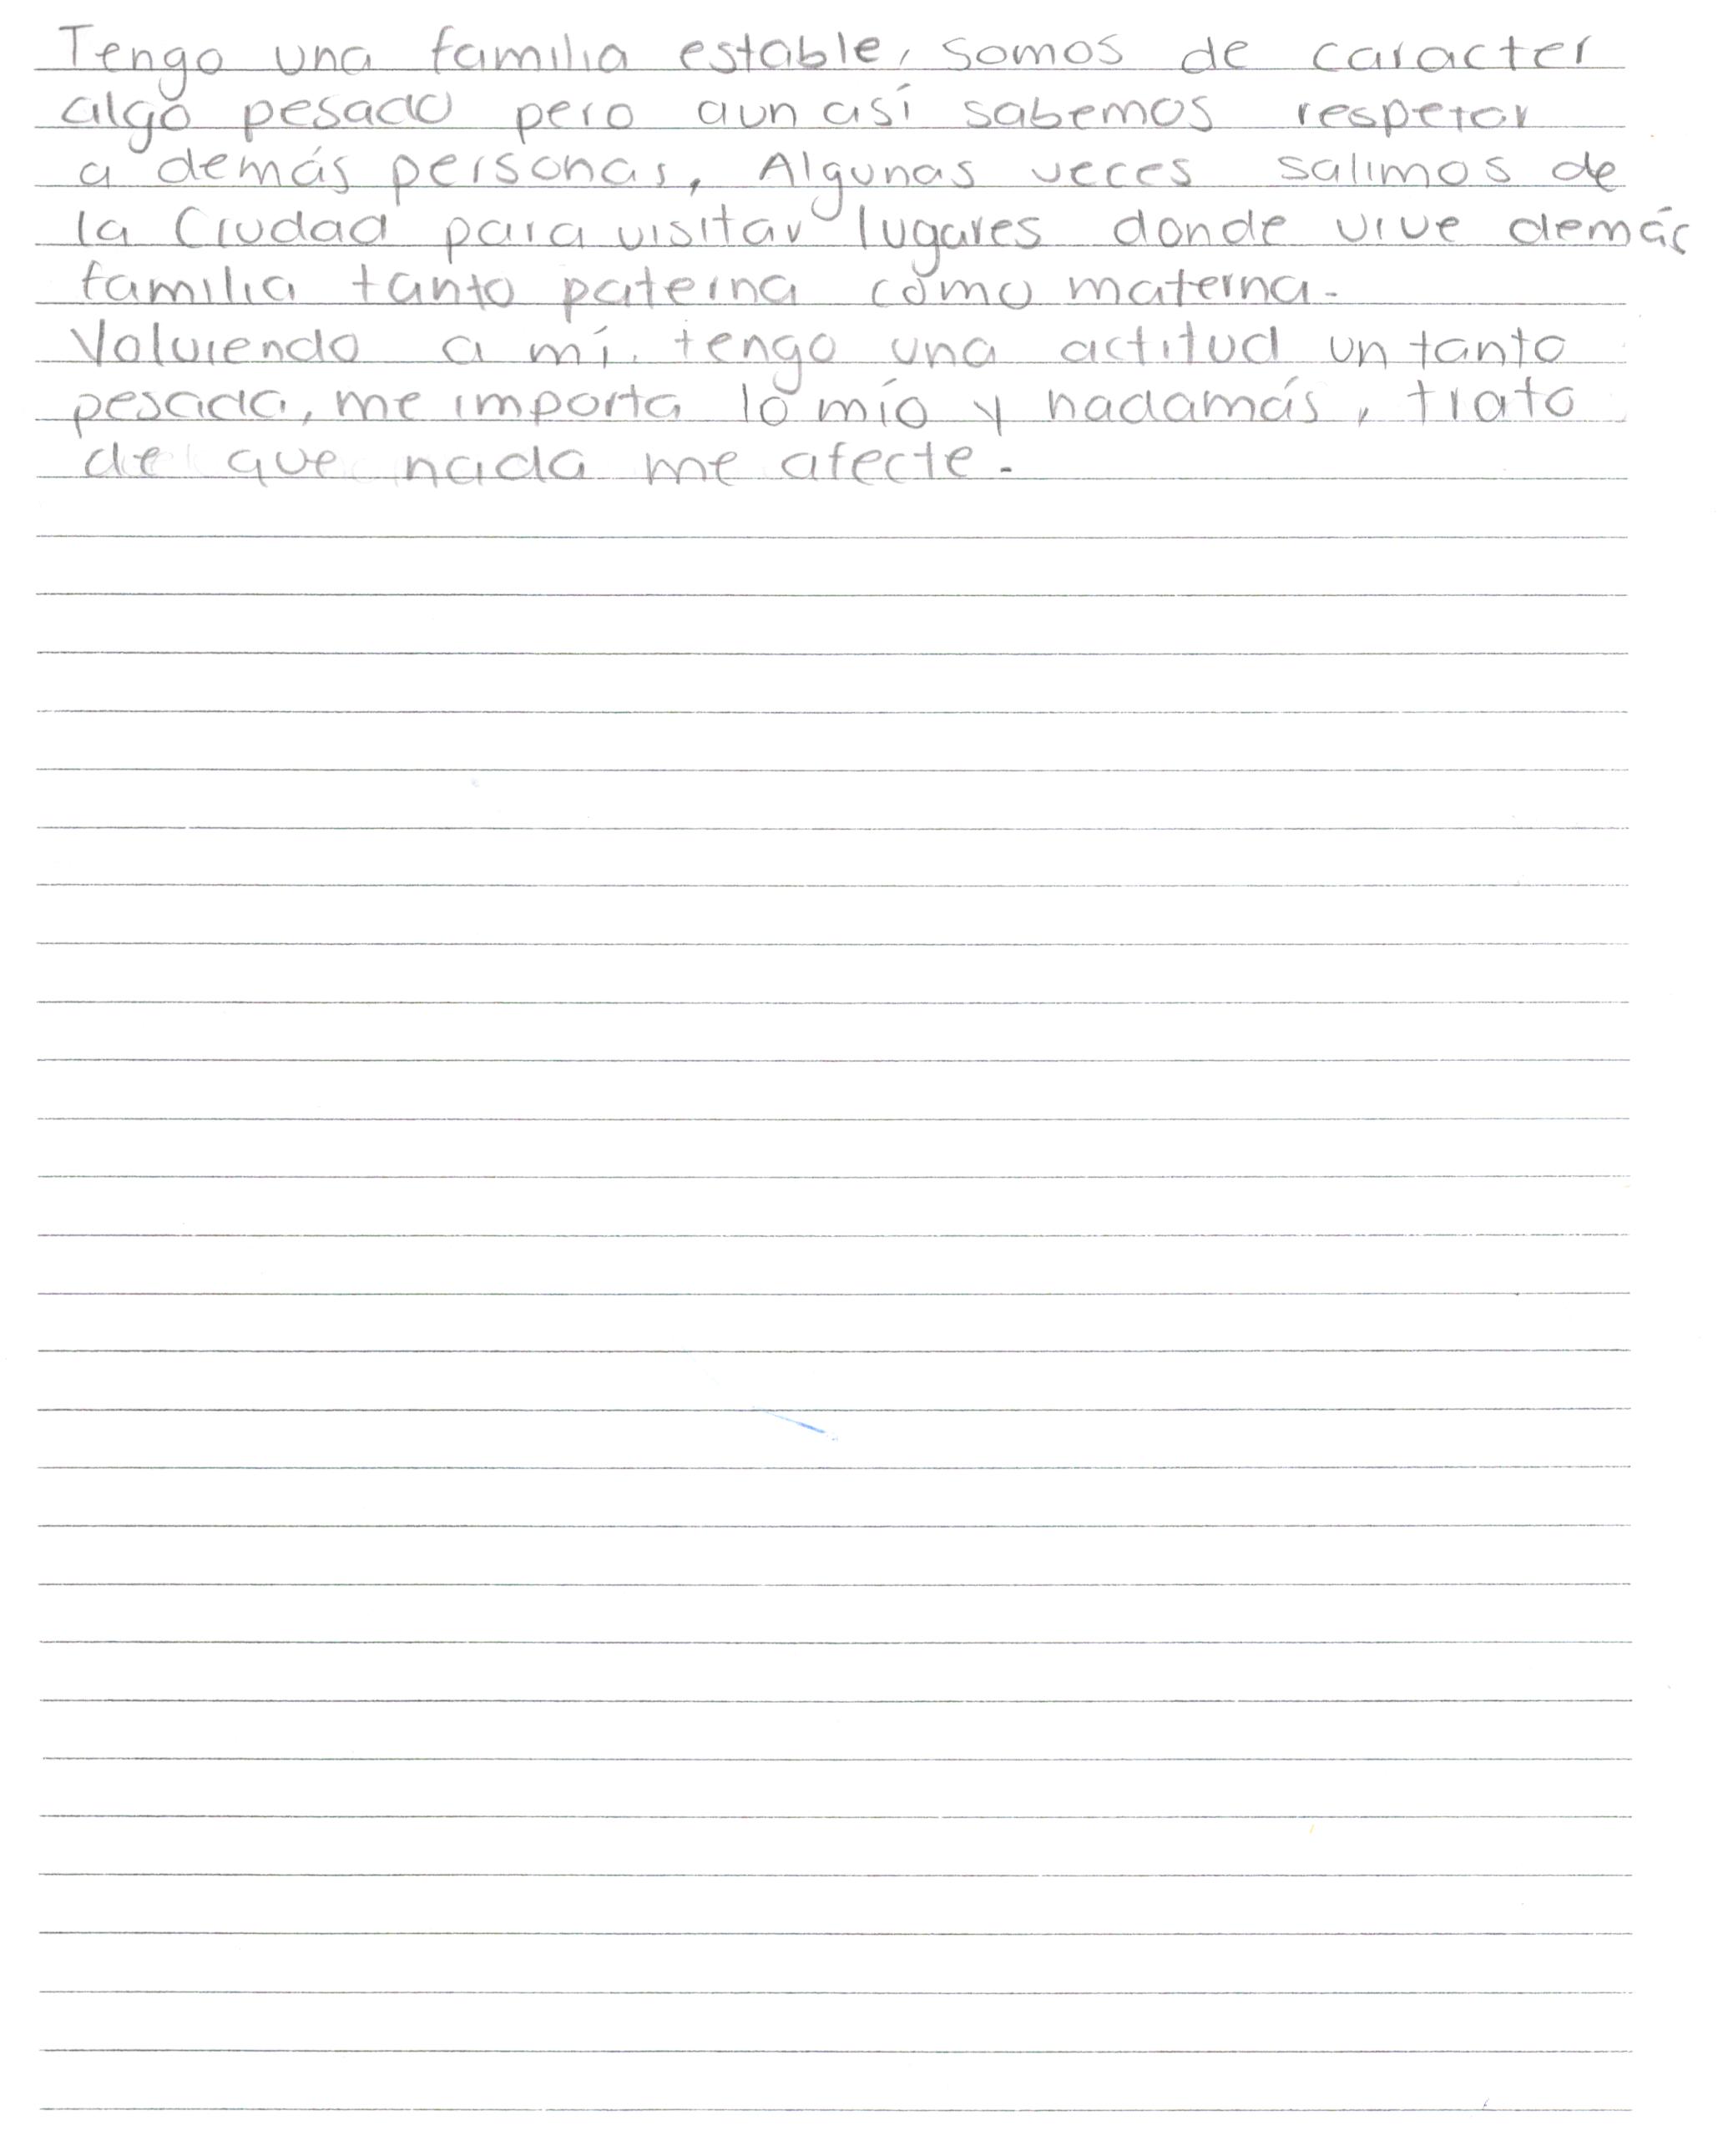 Tengo una familia estable, somos de caracter
algo pesado pero aun así sabemos respetar
a demás personas, Algunas veces salimos de
la Ciudad para visitar lugares donde vive demás
familia tanto paterna como materna.
Volviendo a mí. tengo una actitud un tanto
pesada, me importa lo mío y nadamás, trato
de que nada me afecte.